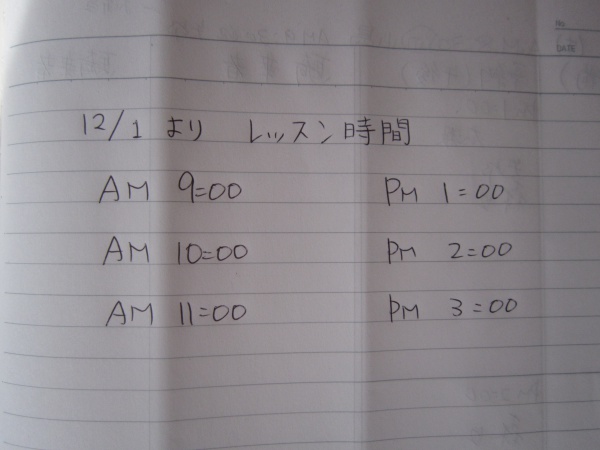 12/1 より レッスン時間
AM 9=00 PM 1=00
AM 10=00 PM 2=00
AM 11=00 PM 3=00